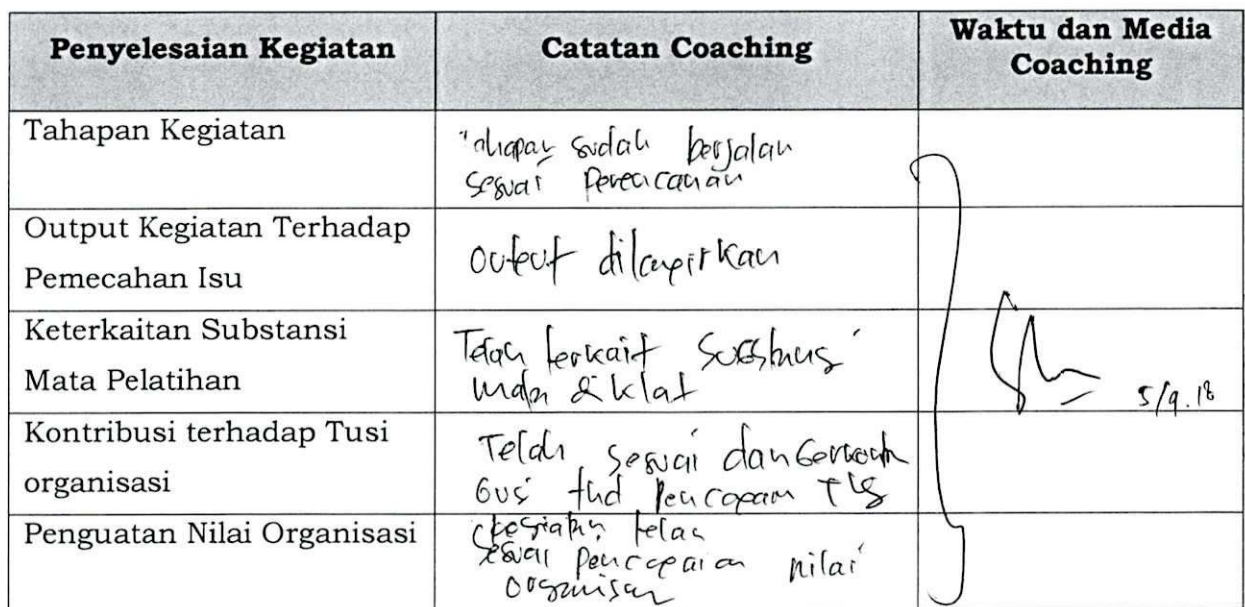 Penyelesaian Kegiatan
Catatan Coaching
Waktu dan Media
Coaching
Tahapan Kegiatan
Tahapan sudah berjalan
sesuai Perencanaan
Output Kegiatan Terhadap
Pemecahan Isu
Output dilampirkan
Keterkaitan Substansi
Mata Pelatihan
Telah terkait
mata diklat
5/9.18
Kontribusi terhadap Tusi
organisasi
Telah sesuai dan
thd Pencapaian
Penguatan Nilai Organisasi
kegiatan telah
sesuai pencapaian nilai
organisasi